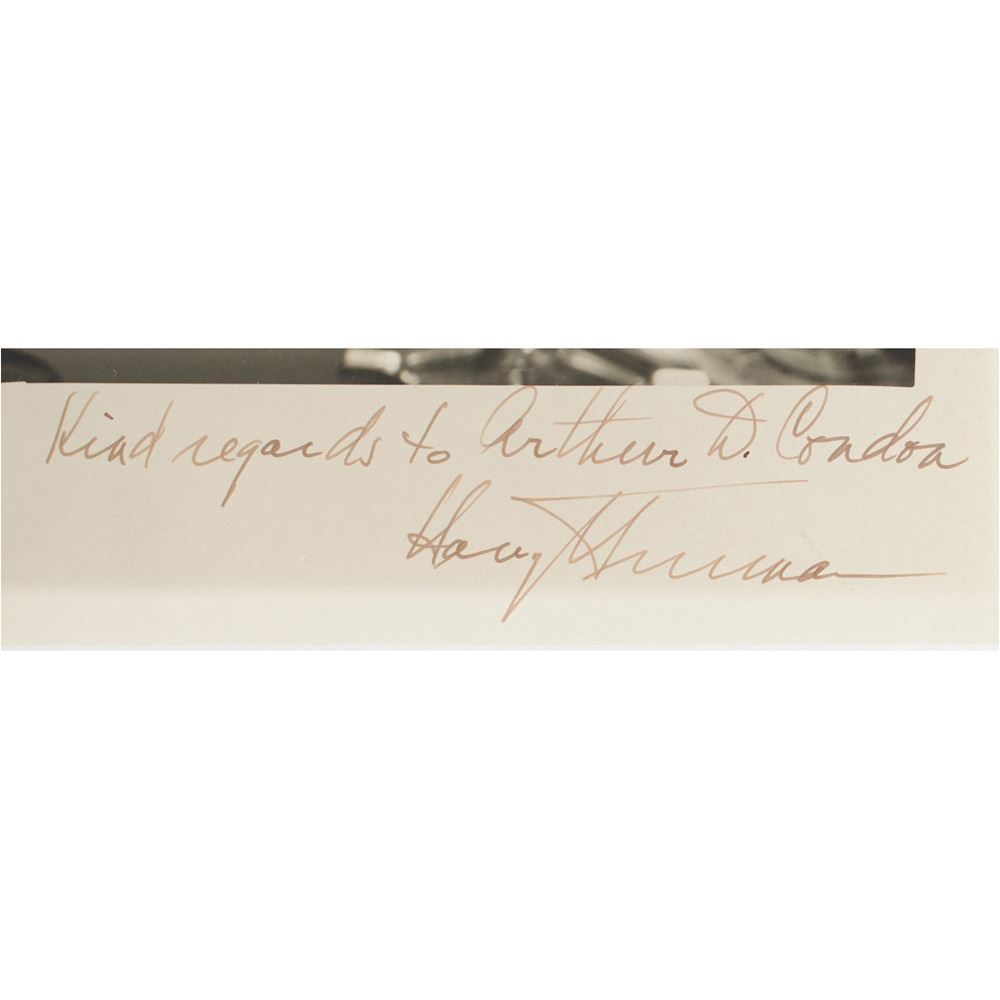 Kind regards to Arthur D. Condon
Harry Truman